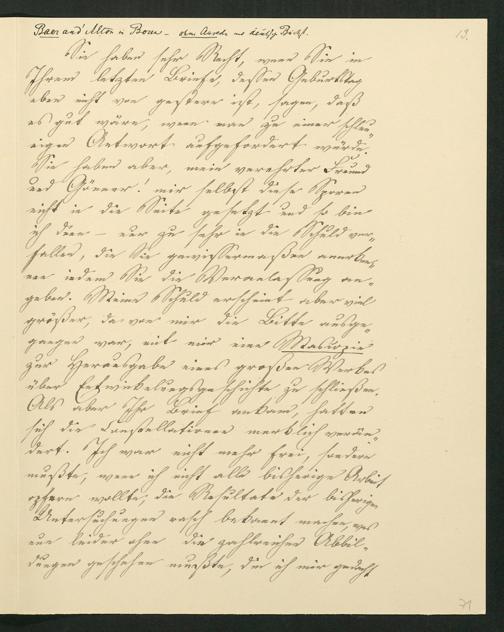 Baer and'Alton in Bonn – ohne Anrede und heutige Dicht. 13.
Sie haben sehr Recht, wenn Sie in
Ihrem letzten Briefe, dessen Geburtstag
aber nicht von gestern ist, sagen, daß
es gut wäre, wenn man zu einer schleu-
nigen Antwort aufgefordert würde.
Sie haben aber, mein verehrter Freund
und Gönner! mir selbst diese Sporen
nicht in die Seite gesetzt und so bin
ich denn – nur zu sehr in die Schuld ver-
fallen, die Sie gewissermaßen anerken-
nen indem Sie die Veranlassung an-
geben. Meine Schuld erscheint aber viel
größer, da von mir die Bitte ausge-
gangen war, mit mir eine
zur Herausgabe eines großen Werkes
über Entwickelungsgeschichte zu schließen.
Als aber Ihr Brief ankam, hatten
sich die Constellationen merklich verän-
dert. Ich war nicht mehr frei, sondern
mußte, wenn ich nicht alle bisherige Arbeit
opfern wollte, die Resultate der bisherigen
Untersuchungen rasch bekannt machen, was
nun leider ohne die zahlreichen Abbil-
dungen geschehen mußte, die ich mir gedacht
71